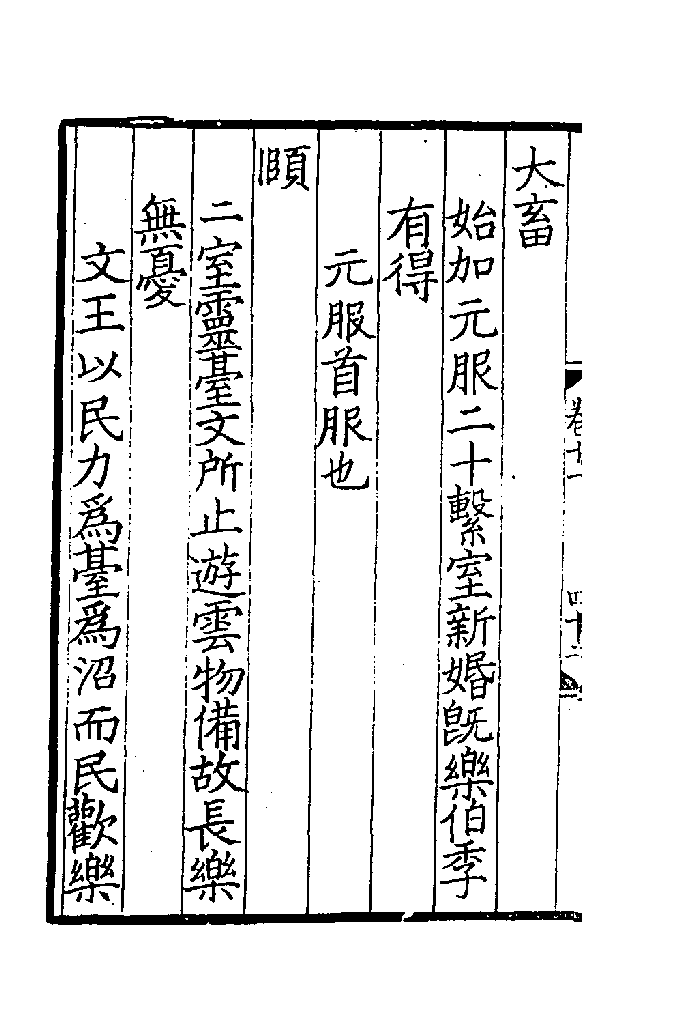 大畜
始加元服二十繫室新婚旣樂伯季
有得
元服首服也
頤
二室靈臺文所止遊雲物備故長樂
無憂
文王以民力爲臺爲沼而民歡樂